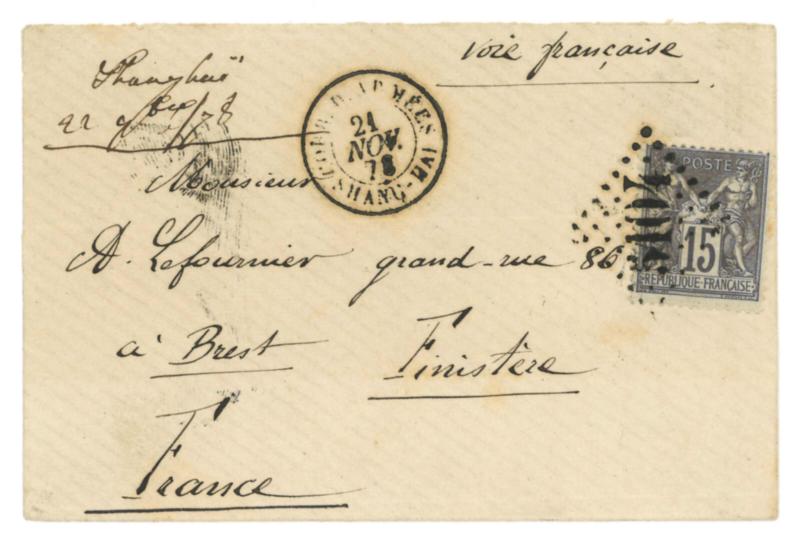 voie française
Shanghaï
22 9bre/78
CORR. D. ARMÉES
21
NOV.
78
SHANG-HAI
POSTE
15
REPUBLIQUE FRANÇAISE
Monsieur
A. Lefournier grand-rue 86
à Brest Finistère
France